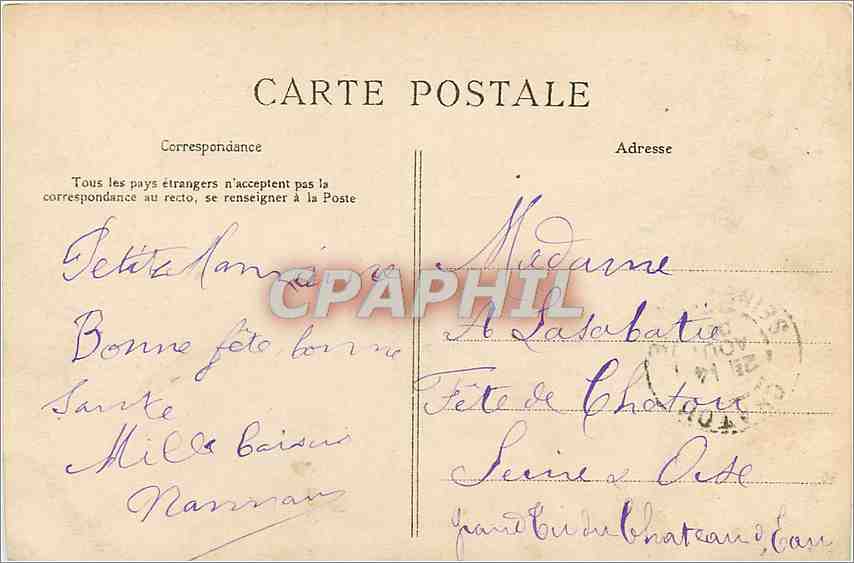 CARTE POSTALE
Correspondance
Tous les pays étrangers n'acceptent pas la
correspondance au recto, se renseigner à la Poste
Petite
Bonne fête bonne
Santé
Mille baisers
Adresse
Madame
A Lasabatie
Fête de Chatou
Seine & Oise
grand Tir du Chateau d'Eau
CHATOU
CPAPHIL